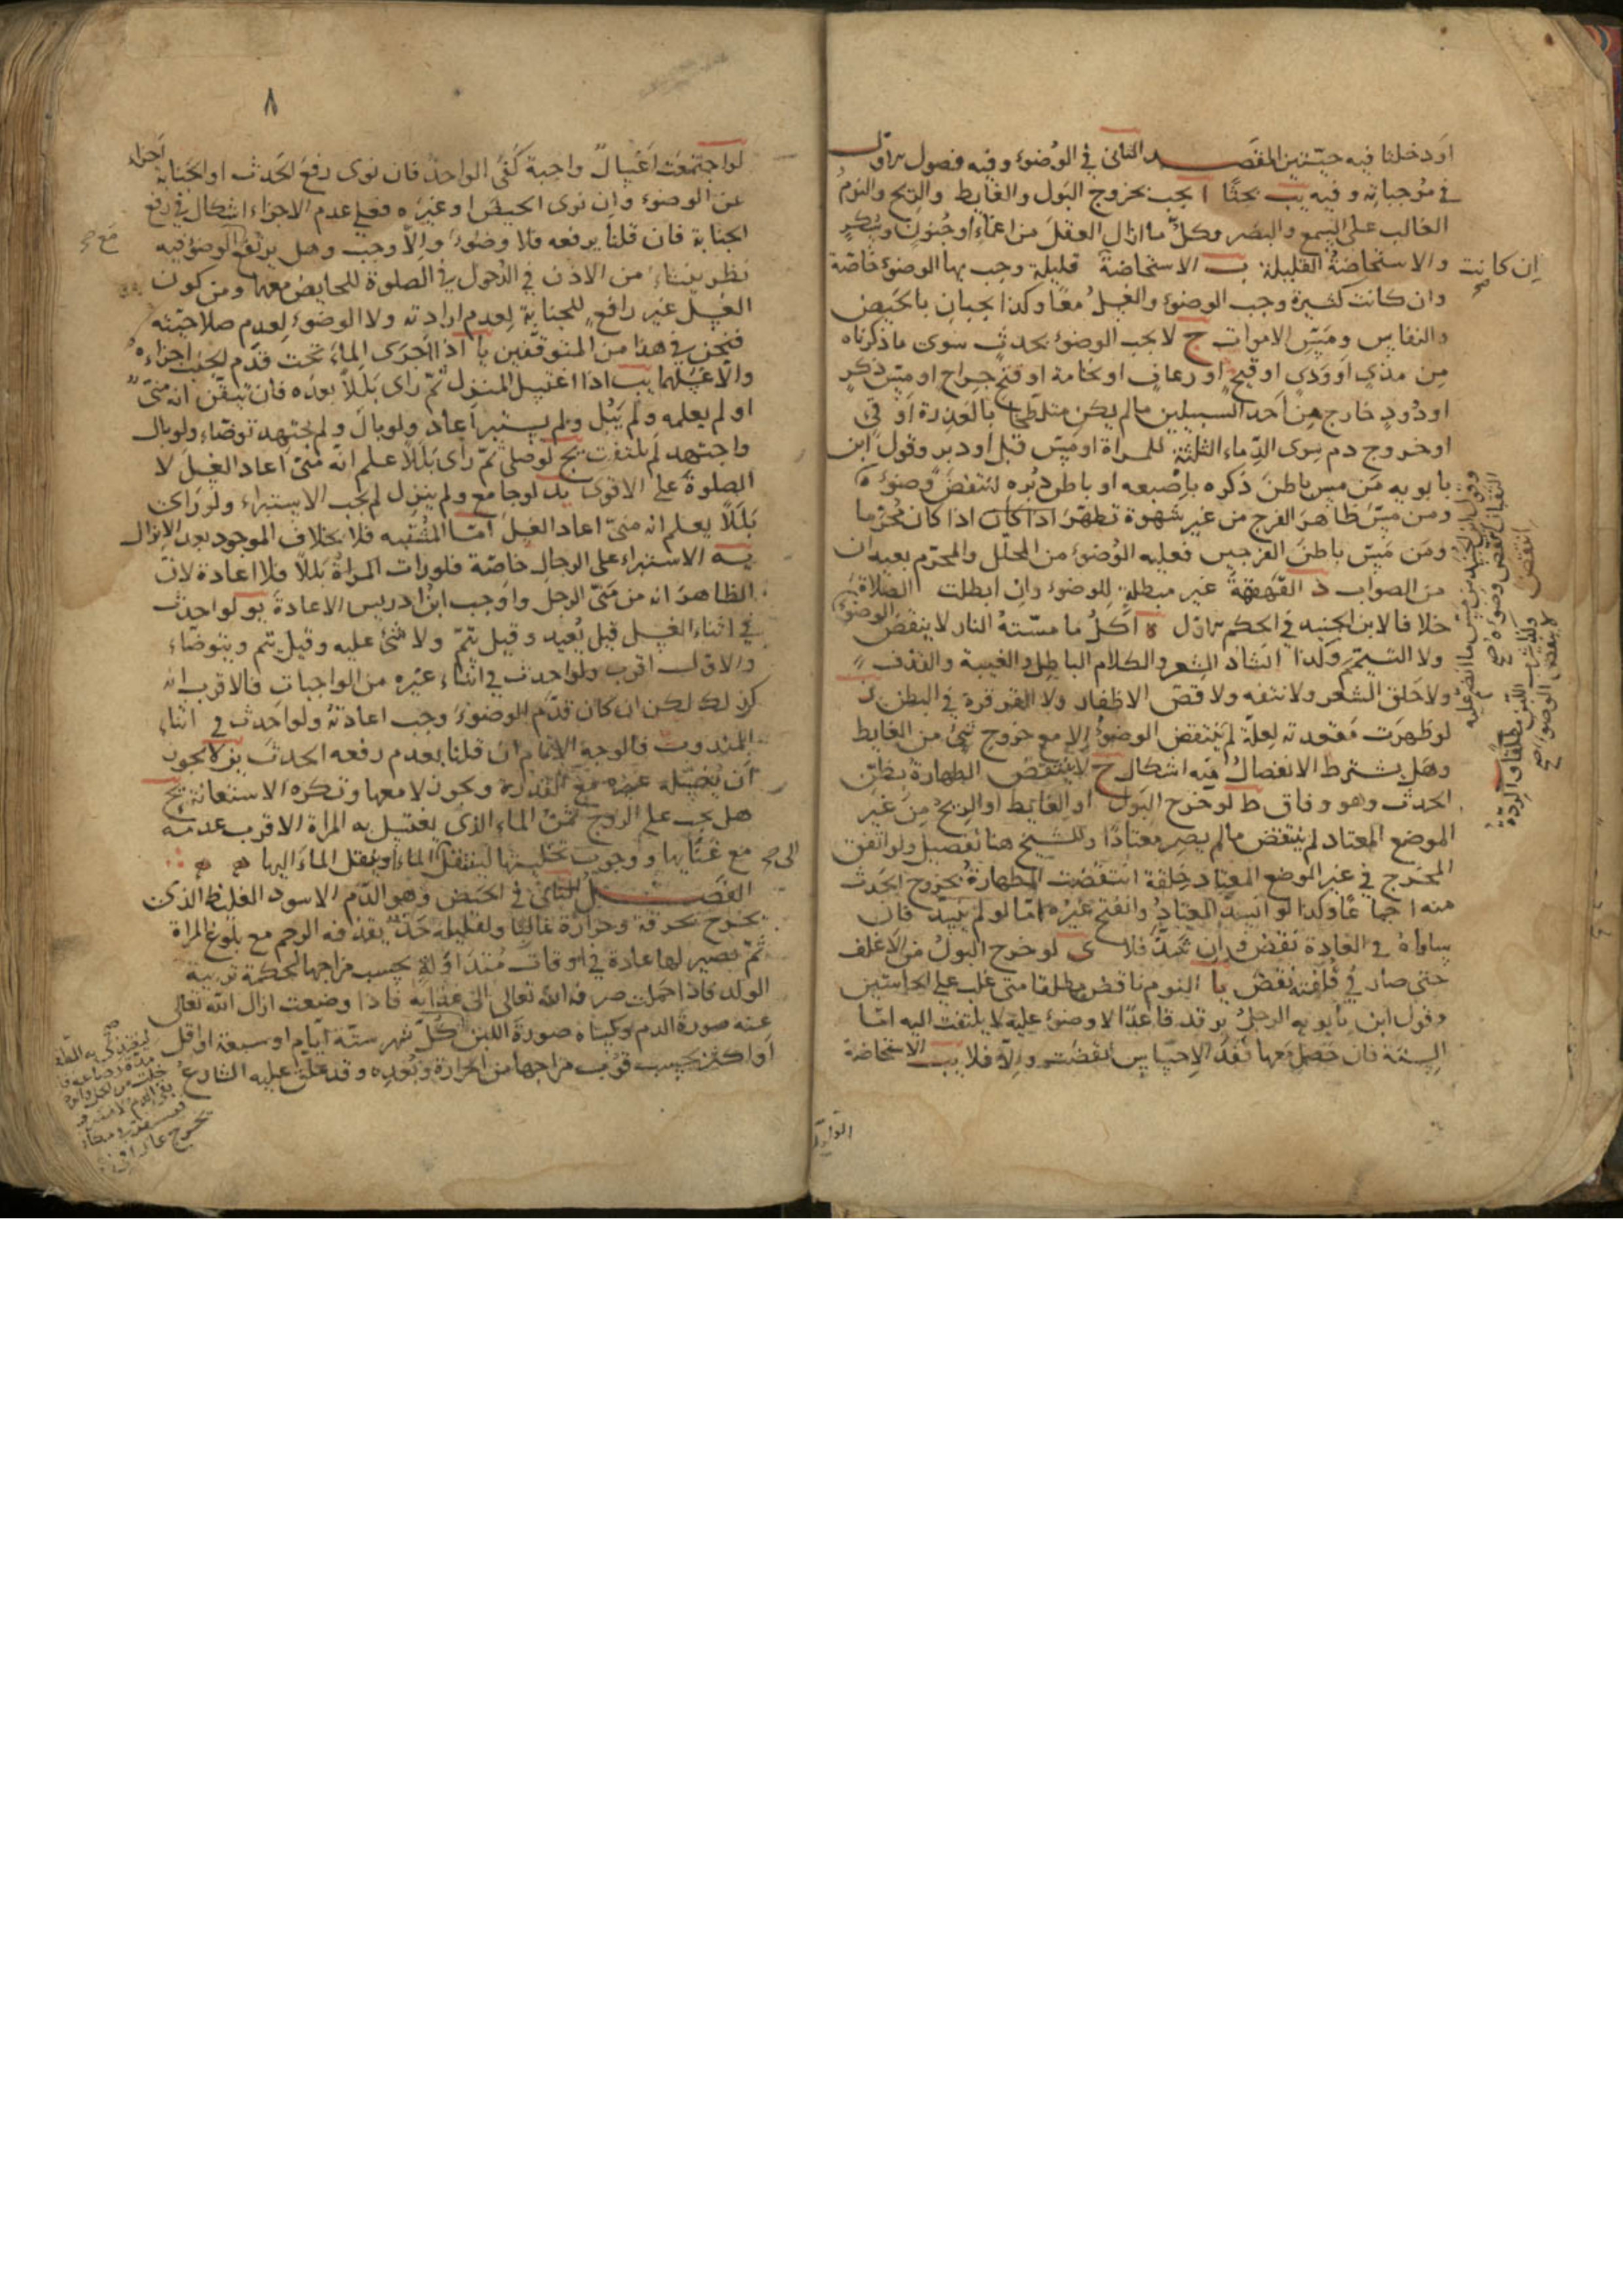 او دخلنا فيه حيّتين المقصد الثانى في الوُضوء وفيه فصول الاول
في مُوجباته وفيه يب بحثًا ا يجب بخروج البَول والغايط والريح والنوم
الغالب على السمع والبصر وكلّ ما ازال العقلَ من اغماءٍ او جُنونٍ او سُكرٍ
والاستحاضة القليلة ب الاستحاضة ان كانت قليلةً وجب بها الوضوء خاصّة
وان كانت كثيرة وجب الوضوء والغسلُ معًا وكذا يجبان بالحَيض
والنفاس ومَسّ الاموات ج لا يجب الوضوء بحدث سوى ما ذكرناه
مِن مذيٍ او وَدى او قيحٍ او رعافٍ او نخامة او فتح جراح او مسّ ذكرٍ
او دُودٍ خارج من اَحد السبيلين ما لم يكن متلطخا بالعذرة او قئ
او خروج دم سِوى الدّماء الثلثة للمراة او مسّ قبل او دبر وقول ابن
بابويه مَن مس باطنَ ذَكره باِصبعه او باطن دُبُره انتقضَ وضوءه
ومن مسّ ظاهرَ الفرج من غير شهوة تطهّر اذا كان اذا كان مُحرّما
ومَن مَسّ باطنَ الفرجين فعليه الوُضوء من المحلّل والمحرّم بعيدان
من الصواب د القهقهةُ غير مبطلةٍ للوضوء وان ابطلت الصلاة
خلافا لابن الجنيد في الحكم الاول ه اَكلُ ما مسّتهُ النار لا ينقض الوضوء
ولا التيمّم وكذا انشاد الشعر والكلام الباطل والغيبة والقذف
ولا حَلق الشعر ولا نتفه ولا قصّ الاظفار ولا القرقرة في البطن ز
لو ظهرَت مَقعدته لِعلّة لم ينتقض الوضوءُ الا مع خروج شئ من الغايط
وهَل يشترط الانفصالُ فيه اشكال ح لا ينتقض الطهارة بظنّ
الحدث وهو وفاق ط لو خرج البَول او الغايط او الريحُ مِنَ غير
الموضع المعتاد لم ينتقض ما لم يصِر معتادًا وللشيخ هنا تفصيل ولو اتفق
المخرج في غير الموضع المعتاد خِلقة انتقضت الطهارة بخروج الحَدث
منه اجماعًا وكذا لو انسدّ المعتادُ وانفتح غَيره اما لو لم ينسدّ فان
ساواهُ في العادة نقض وان نَدَر فلا ى لو خرج البَولُ من الاغلف
حتى صار في قُلفته نقضَ يا النوم ناقض مطلقا متى غلب على الحاسّتين
وقول ابن بابويه الرجلُ يرقد قاعدًا لا وضوء عليه لا يلتفت اليه امّا
السِنَة فان حصل معها فَقدُ الاِحساس انتقضت والّا فلا يب الاستحاضة
٨
لو اجتمعَت اغسالٌ واجبة كَفى الواحدُ فان نوى رفعَ الحَدث او الجنابة اجزاء
عن الوضوء وان نوى الحيضَ او غيرَه فعلى عدم الاجزاء اشكال في رفع
الجنابة فان قلنا يرفعه فلا وضوء والّا وجب وهل يرتفع الوضوء فيه
نظر ينشاء من الاذن في الدخول في الصلوة للحايض معها ومن كون
الغسل غير رافعٍ للجنابة لِعدم ارادته ولا الوضوء لعدم صلاحيّته
فنحن في هذا من المتوقّفين يا اذا اَجرَى الماءَ تحت قدَم الجُنب اجزاءه
والّا غسلهما يب اذا اغتسل المنزل ثمّ راى بَللاً بعده فان تيقّن انه منىّ
او لم يعلمه ولم يَبُل ولم يستبر اعاد ولو بالَ ولم يجتهد توضّاء ولو بال
واجتهد لَم يلتفت يج لو صلّى ثمّ رأى بَلَلاً علم انّه منىّ اعاد الغسلَ لا
الصلوةَ على الاقوى يد لو جامع ولم ينزل لم يجب الاستبراء ولو رَاى
بَلَلاً يعلم انه منىّ اعاد الغسلَ امّا المشتبه فلا بخلاف الموجود بعد الانزال
يه الاستبراء على الرجال خاصّة فلو رات المراةُ بَللاً فلا اعادة لانّ
الظاهرَ انه من مَنىّ الرجل واَوجب ابنُ ادريس الاعادةَ يو لو احدث
في اثناء الغسل قيل يُعيد وقيل يتمّ ولا شئ عليه وقيل يتم ويتوضّاء
والاول اقرب ولو احدث في اثناء غيره من الواجبات فالاقرب انه
كذلك لكن ان كان قدّم الوضوءَ وجب اعادتُه ولو احدث في اثناء
المندوب فالوجه الاتمام ان قلنا بعدم رفعه الحدثَ يز لا يجوز
ان يُغسّله غيره مع القدرة ويجوز لا معها وتكره الاستعانة يح
هل يجب على الزوج ثمن الماء الذى يغتسل به المراة الاقرب عدمه
مع غنائها ووجوب تخليتها لتنتقل الى الماء او ينقل الماءَ اليها
الفصل الثانى في الحَيض وهو الدّم الاسود الغليظ الذى
يخرج بحرقة وحرارة غالبًا ولقليله حَدّ يقذفه الرحم مع بلوغ المراة
ثمّ تصير لها عادة في اوقات مُتداولةٍ بحسب مزاجها لحكمة تربية
الولد فاذا حَملت صرفه الله تعالى الى غذايه فاذا وضعت ازال الله تعالى
عنه صورةَ الدم وكساه صورة اللبن كلّ شهر ستّة ايّام او سبعة او اقل
اَو اكثر بحسب قُرب مزاجها من الحرارة وبُعده وقد علّق عليه الشارع